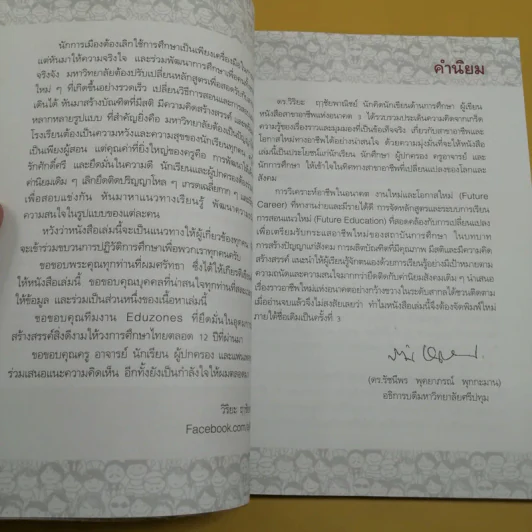 นักการเมืองต้องเลิกใช้การศึกษาเป็นเพียงเครื่องมือ
แต่หันมาให้ความจริงใจ และร่วมพัฒนาการศึกษา
จริงจัง มหาวิทยาลัยต้องปรับเปลี่ยนหลักสูตรเพื่อ
ใหม่ ๆ ที่เกิดขึ้นอย่างรวดเร็ว เปลี่ยนวิธีการสอนและ
เดินได้ หันมาสร้างบัณฑิตที่มีสติ มีความคิดสร้างสรรค์
หลากหลายรูปแบบ ที่สำคัญยิ่งคือ มหาวิทยาลัยต้อง
โรงเรียนต้องเป็นความหวังและความสุขของนักเรียนทุกคน
เป็นเพียงผู้สอน แต่คุณค่าที่ยิ่งใหญ่ของครูคือ การพัฒนา
รักศักดิ์ศรี และยึดมั่นในความดี นักเรียนและผู้ปกครองต้อง
ค่านิยมเดิม ๆ เลิกยึดติดปริญญาโหล ๆ เกรดเฉลี่ย
เพื่อสอบแข่งกัน หันมาหาแนวทางเรียนรู้ พัฒนาความ
ความสนใจในรูปแบบของแต่ละคน
หวังว่าหนังสือเล่มนี้จะเป็นแนวทางให้ผู้เกี่ยวข้องทุก
จะเข้าร่วมขบวนการปฏิวัติการศึกษาเพื่อพวกเราทุกคนครับ
ขอขอบพระคุณทุกท่านที่ผมศรัทธา ซึ่งได้ให้เกียรติ
ให้หนังสือเล่มนี้ ขอขอบคุณบุคคลที่น่าสนใจทุกท่านที่
ให้ข้อมูล และร่วมเป็นส่วนหนึ่งของเนื้อหาเล่มนี้
ขอขอบคุณทีมงาน Eduzones ที่ยึดมั่นใน
สร้างสรรค์สิ่งดีงามให้วงการศึกษาไทยตลอด 12 ปีที่ผ่านมา
ขอขอบคุณครู อาจารย์ นักเรียน ผู้ปกครอง และ
ร่วมเสนอแนะความคิดเห็น อีกทั้งยังเป็นกำลังใจให้ผมตลอด
วิริยะ
Facebook.com
คำนิยม
ดร.วิริยะ ฤาชัยพาณิชย์ นักคิดนักเขียนด้านการศึกษา ผู้เขียน
หนังสือสาขาอาชีพแห่งอนาคต 3 ได้รวบรวมประเด็นความคิดจากเกร็ด
ความรู้ของเรื่องราวและมุมมองที่เป็นข้อเท็จจริง เกี่ยวกับสาขาอาชีพและ
โอกาสใหม่ทางอาชีพได้อย่างน่าสนใจ ด้วยความมุ่งมั่นที่จะให้หนังสือ
เล่มนี้เป็นประโยชน์แก่นักเรียน นักศึกษา ผู้ปกครอง ครูอาจารย์ และ
นักการศึกษา ให้เข้าใจในทิศทางสาขาอาชีพที่เปลี่ยนแปลงของโลกและ
สังคม
การวิเคราะห์อาชีพในอนาคต งานใหม่และโอกาสใหม่ (Future
Career) ที่หางานง่ายและมีรายได้ดี การจัดหลักสูตรและระบบการเรียน
การสอนแนวใหม่ (Future Education) ที่สอดคล้องกับการเปลี่ยนแปลง
เพื่อเตรียมรับกระแสอาชีพใหม่ของสถาบันการศึกษา ในบทบาท
การสร้างปัญญาแก่สังคม การผลิตบัณฑิตที่มีคุณภาพ มีสติและมีความคิด
สร้างสรรค์ แนะนำให้ผู้เรียนรู้จักตนเองด้วยการเรียนรู้อย่างมีเป้าหมายตาม
ความถนัดและความสนใจมากกว่ายึดติดกับค่านิยมสังคมเดิม ๆ นำเสนอ
เรื่องราวอาชีพใหม่แห่งอนาคตอย่างกว้างขวางในระดับสากลได้ชวนติดตาม
เมื่ออ่านจบแล้วจึงไม่สงสัยเลยว่า ทำไมหนังสือเล่มนี้จึงต้องจัดพิมพ์ใหม่
ภายใต้ชื่อเดิมเป็นครั้งที่ 3
(ดร.รัชนีพร พุคยาภรณ์ พุกกะมาน)
อธิการบดีมหาวิทยาลัยศรีปทุม